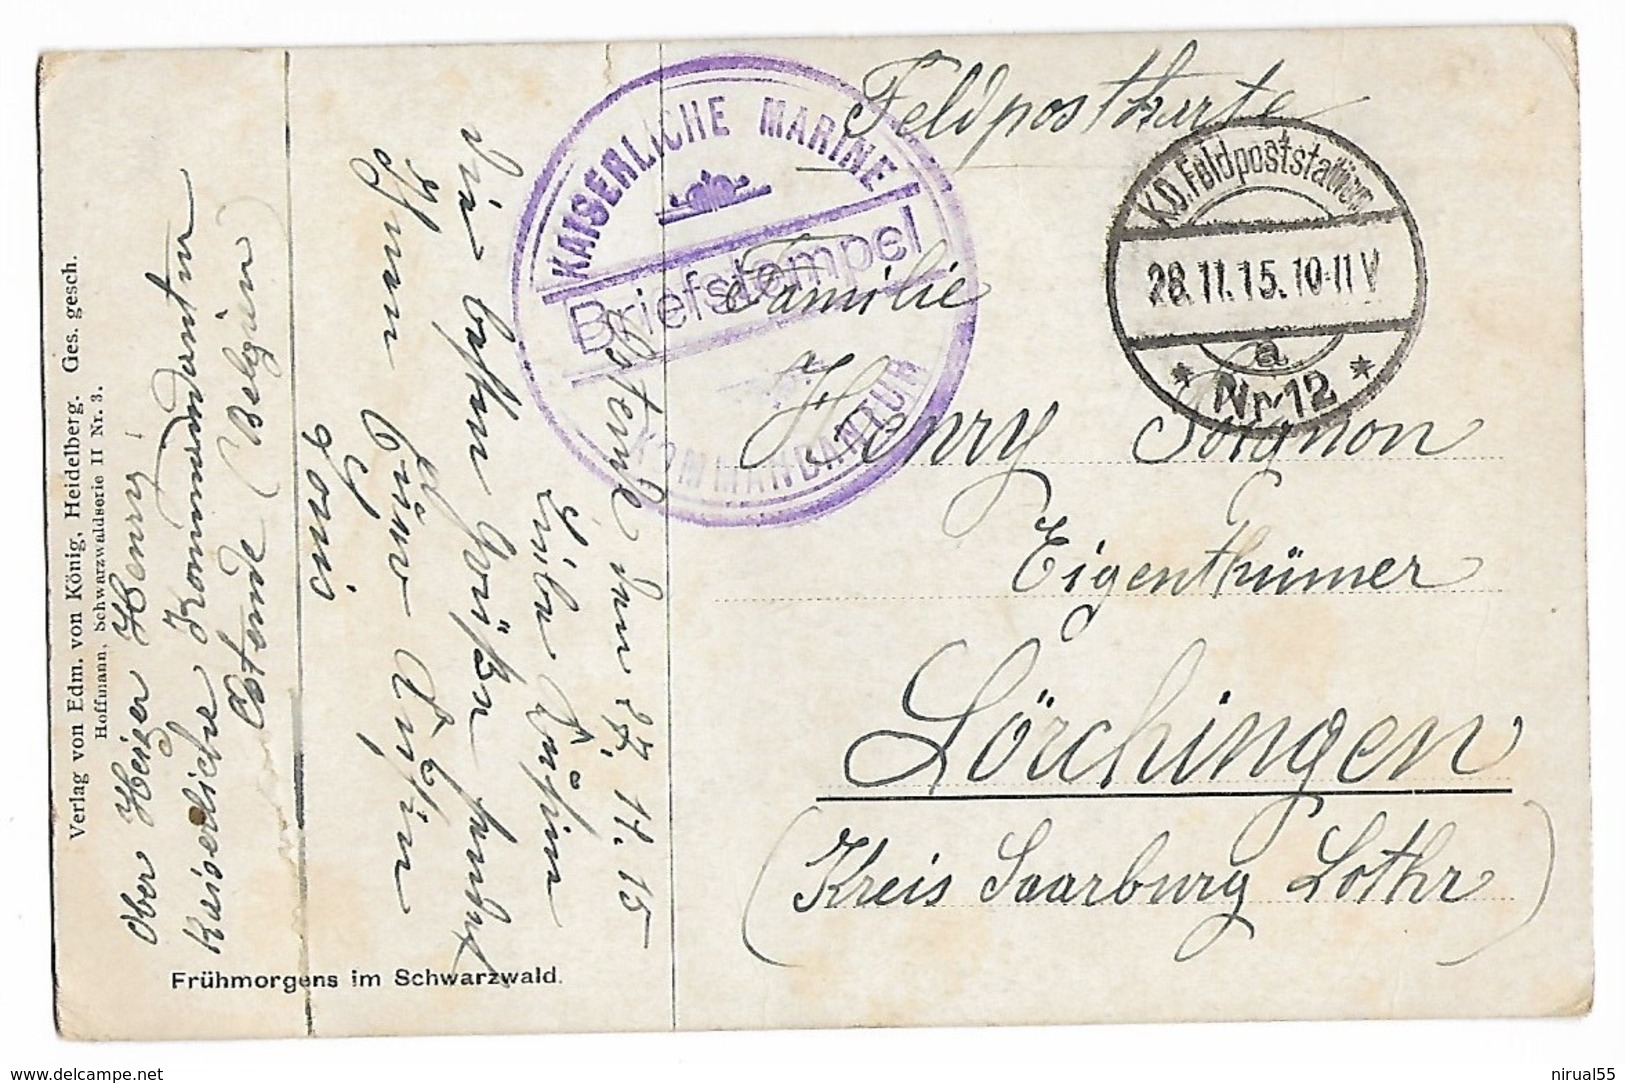 Feldpostkarte
KAISERLICHE MARINE
Briefstempel
KOMMANDANTUR
K.D. Feldpoststation
28.11.15. 10-11 V
a
* Nr 12 *
Familie
Henry Soignon
Eigenthümer
Lörchingen
(Kreis Saarburg Lothr)
Ostende den 27. 11. 15
Liebe Cousine
Die besten Grüße sendet
Ihnen Euer Cousin
Henry
Ober Heizer Henry
Kaiserliche Kommandantur
Ostende (Belgien)
Verlag von Edm. von König, Heidelberg. Ges. gesch.
Hoffmann, Schwarzwaldserie II Nr. 3.
Frühmorgens im Schwarzwald.
delcampe.net
nirual55